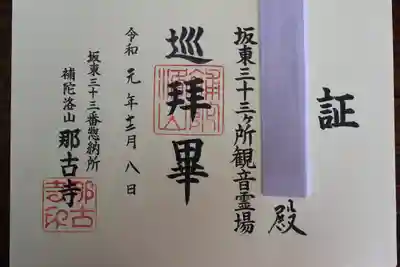 証
殿
坂東三十三ヶ所観音霊場
巡拝畢
令和元年十二月八日
坂東三十三番惣納所
補陀洛山 那古寺